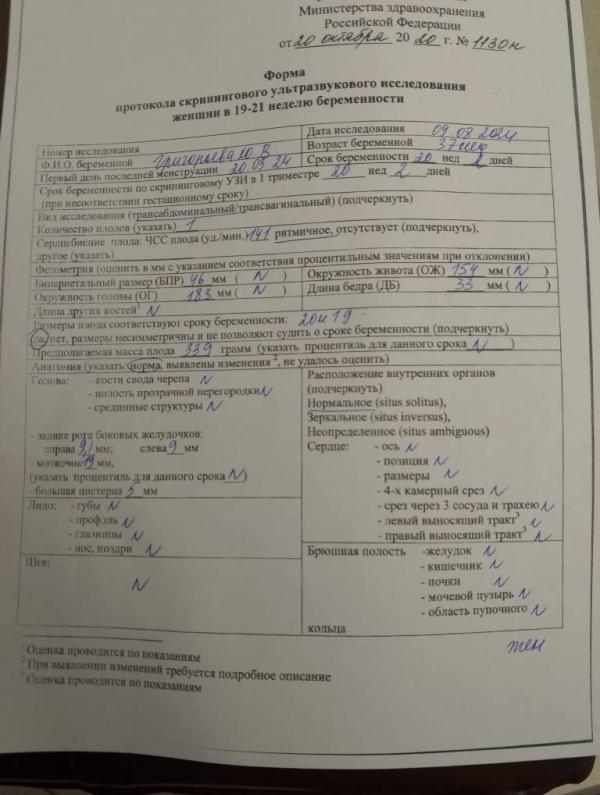 Министерства здравоохранения
Российской Федерации
от 20 октября 2020 г. № 1130н
Форма
протокола скринингового ультразвукового исследования
женщин в 19-21 неделю беременности
Номер исследования
Дата исследования 09.08.2024
Ф.И.О. беременной Григорьева Ю В
Возраст беременной 37
Первый день последней менструации 20.03.24
Срок беременности 20 нед 2 дней
Срок беременности по скрининговому УЗИ в 1 триместре 20 нед 2 дней
(при несоответствии гестационному сроку)
Вид исследования (трансабдоминальный/трансвагинальный) (подчеркнуть)
Количество плодов (указать) 1
Сердцебиение плода: ЧСС плода (уд./мин.) 141 ритмичное, отсутствует (подчеркнуть),
другое (указать)
Фетометрия (оценить в мм с указанием соответствия процентильным значениям при отклонении)
Бипариетальный размер (БПР) 46 мм ( N )
Окружность живота (ОЖ) 154 мм ( N )
Окружность головы (ОГ) 183 мм ( N )
Длина бедра (ДБ) 33 мм ( N )
Длина других костей¹ N
Размеры плода соответствуют сроку беременности: 20н1д
да/нет, размеры несимметричны и не позволяют судить о сроке беременности (подчеркнуть)
Предполагаемая масса плода 339 грамм (указать процентиль для данного срока N )
Анатомия (указать: норма, выявлены изменения ², не удалось оценить)
Голова: - кости свода черепа N
- полость прозрачной перегородки N
- срединные структуры N
- задние рога боковых желудочков:
справа 9,1 мм; слева 9 мм
- мозжечок 19 мм,
(указать процентиль для данного срока N )
- большая цистерна 5 мм
Расположение внутренних органов
(подчеркнуть)
Нормальное (situs solitus),
Зеркальное (situs inversus),
Неопределенное (situs ambiguous)
Сердце: - ось N
- позиция N
- размеры N
- 4-х камерный срез N
- срез через 3 сосуда и трахею N
- левый выносящий тракт³ N
- правый выносящий тракт³ N
Лицо: - губы N
- профиль N
- глазницы N
- нос, ноздри N
Брюшная полость -желудок N
- кишечник N
- почки N
- мочевой пузырь N
- область пупочного N
кольца
Шея:
N
жен
¹ Оценка проводится по показаниям
² При выявлении изменений требуется подробное описание
³ Оценка проводится по показаниям